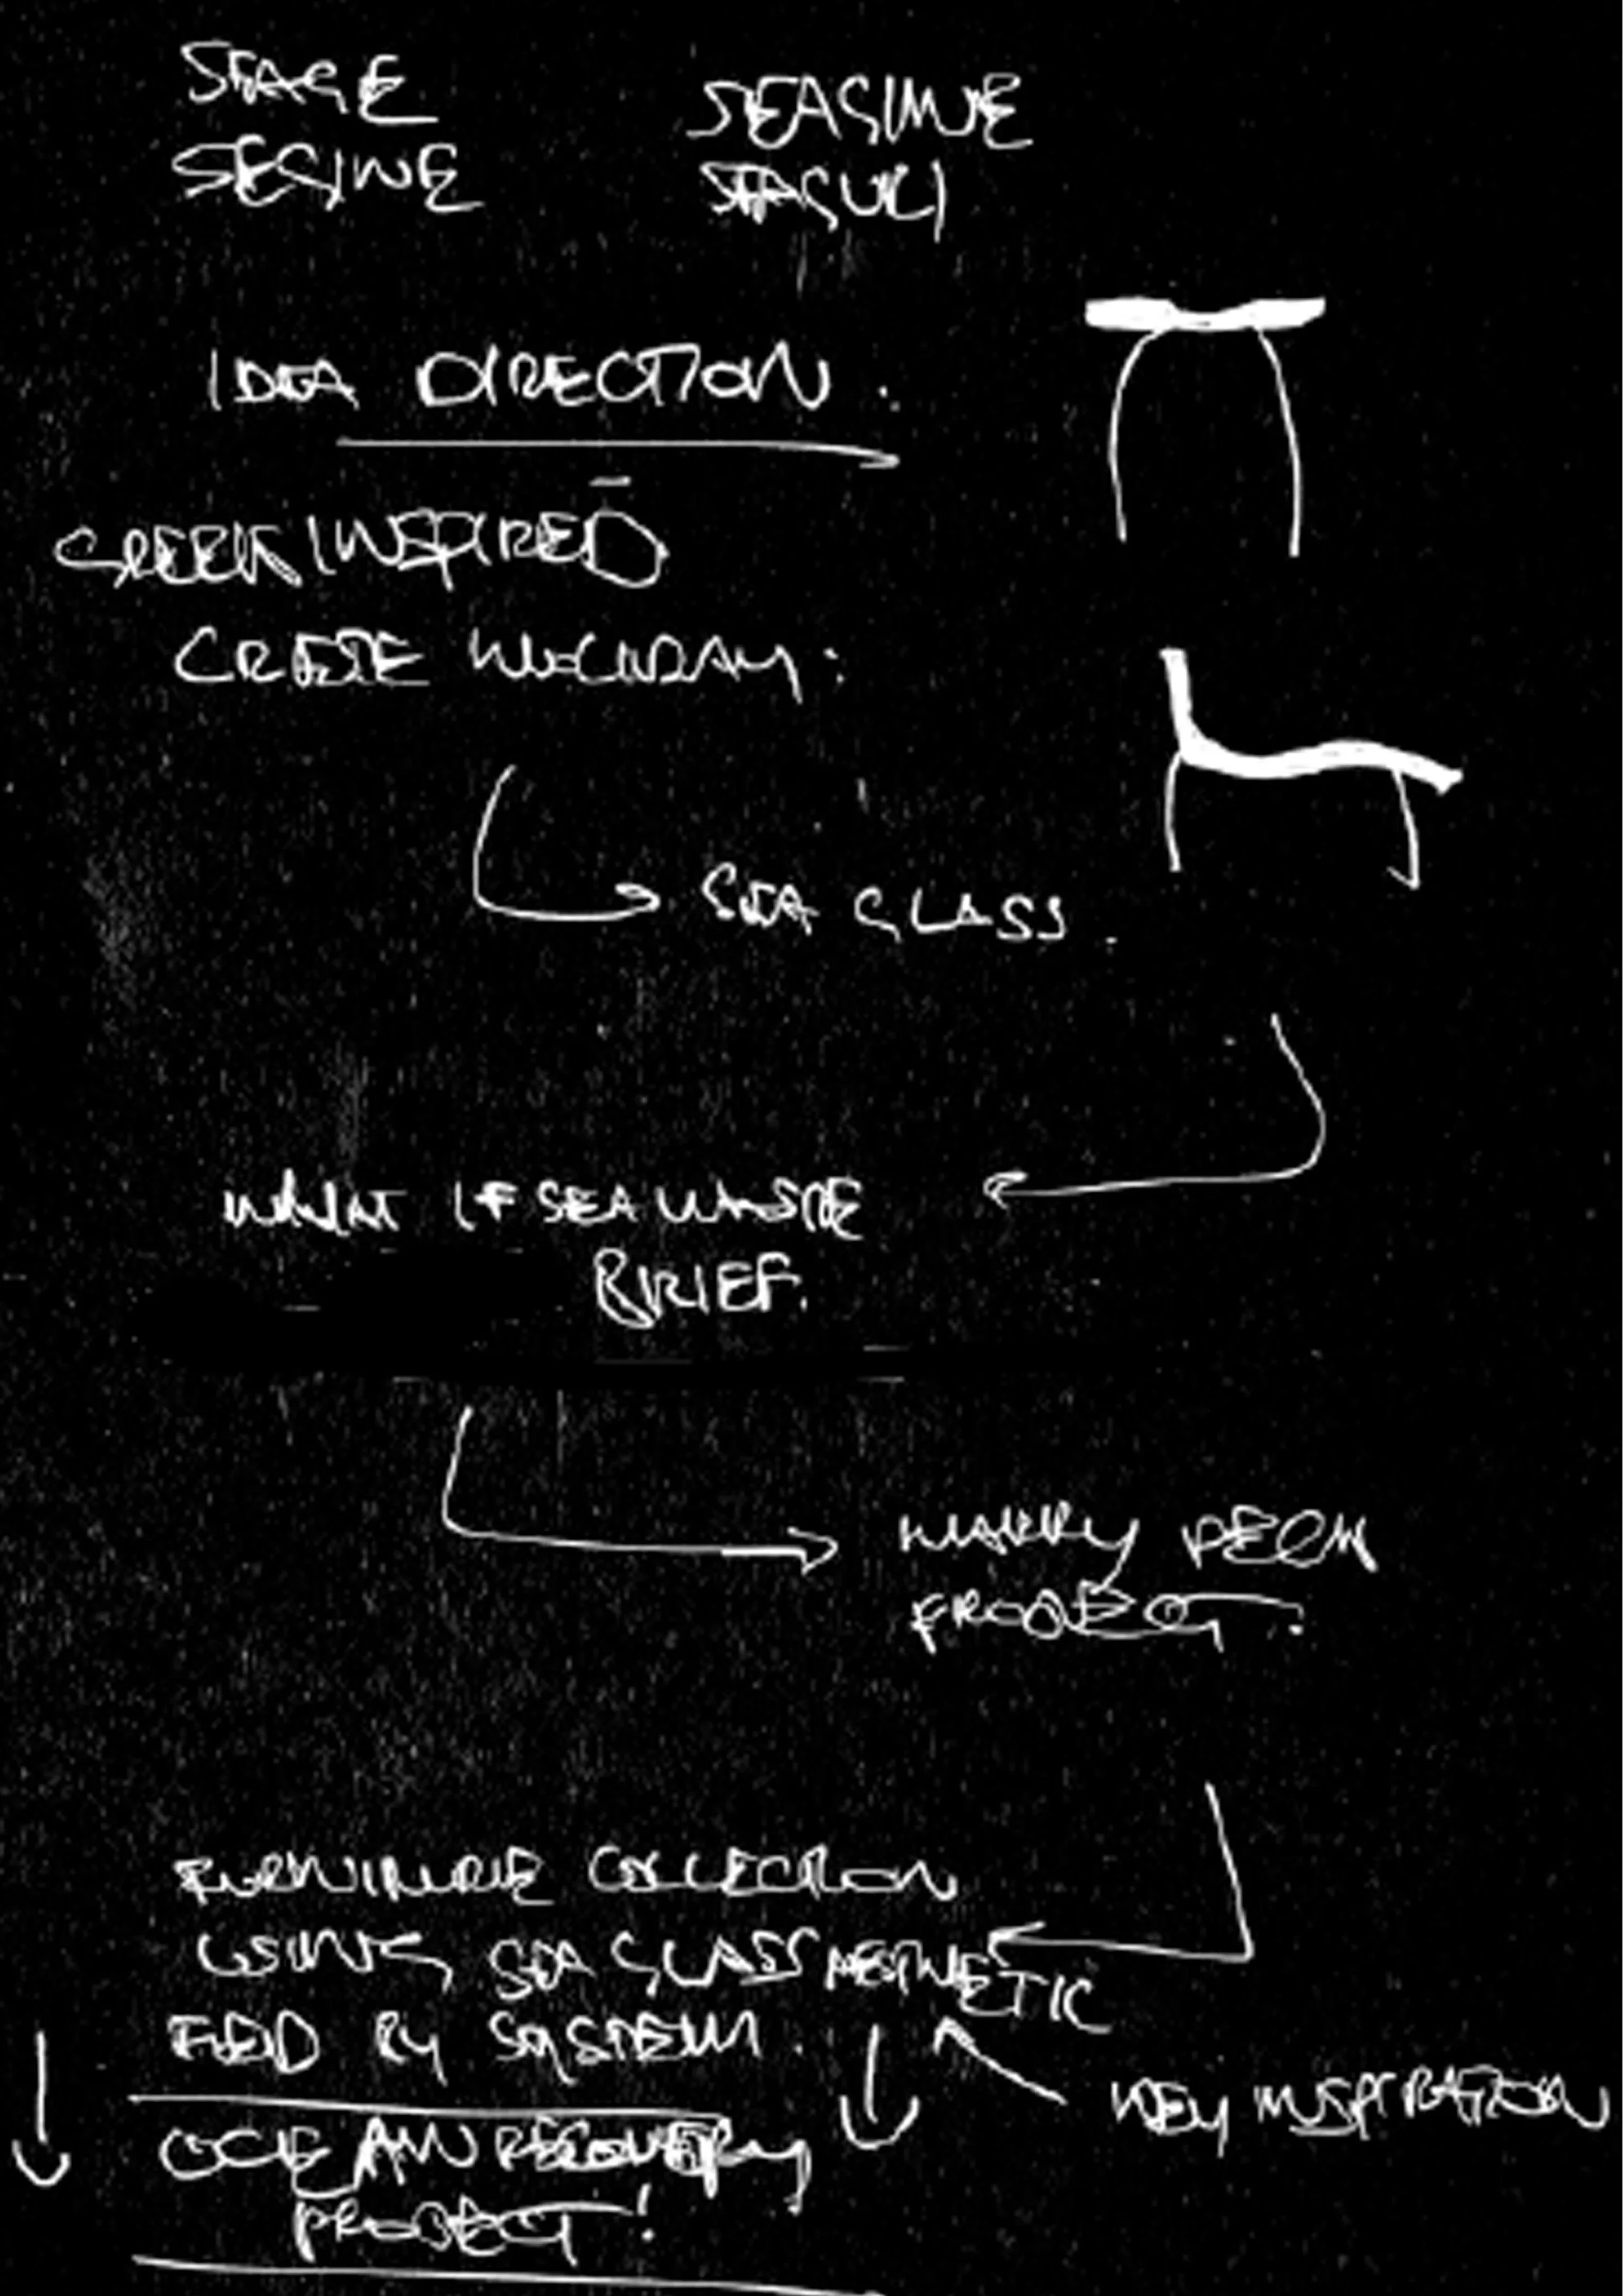 SEAGE
SEGINE
SEAGINE
SEAGULI
IDEA DIRECTION.
GREEK INSPIRED
CRETE HOLIDAY:
SEA GLASS.
WHAT IF SEA WASTE
BRIEF.
MARRY
PROJECT.
FURNITURE COLLECTION
USING SEA GLASS AESTHETIC
FEED BY SYSTEM.
KEY INSPIRATION
OCEAN RECOVERY
PROJECT!